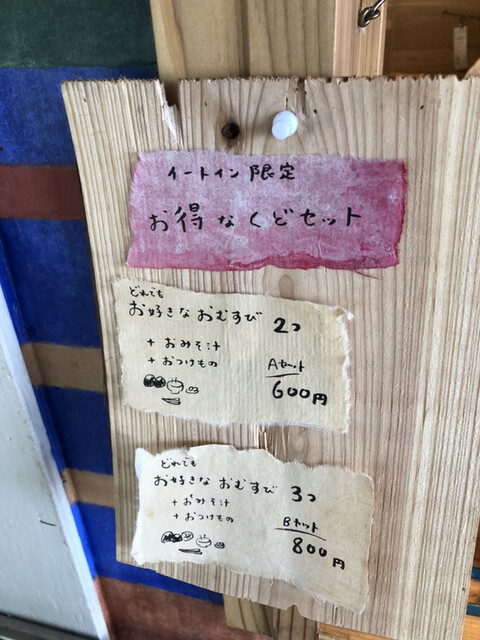 イートイン限定
お得なくどセット
どれでも
お好きなおむすび 2つ
+ おみそ汁
+ おつけもの Aセット
600円
どれでも
お好きなおむすび 3つ
+ おみそ汁
+ おつけもの Bセット
800円